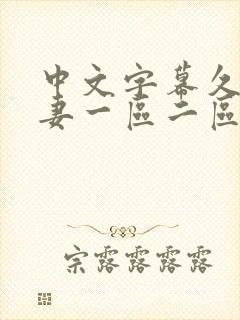 中文字幕久
妻一區二區
宗露露露露